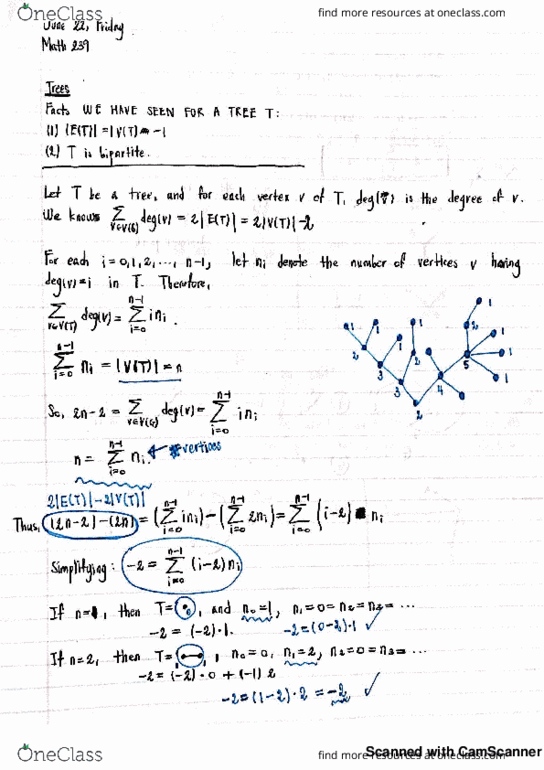 OneClass
find more resources at oneclass.com
June 22, Friday
Math 239
Trees
Facts WE HAVE SEEN FOR A TREE T:
(1) |E(T)| = |V(T)| - 1
(2) T is bipartite.
Let T be a tree, and for each vertex v of T, deg(v) is the degree of v.
We knows ∑_{v∈V(G)} deg(v) = 2|E(T)| = 2|V(T)| - 2
For each i = 0, 1, 2, ..., n-1, let ni denote the number of vertices v having
deg(v) = i in T. Therefore,
∑_{v∈V(T)} deg(v) = ∑_{i=0}^{n-1} i ni.
∑_{i=0}^{n-1} ni = |V(T)| = n
So, 2n-2 = ∑_{v∈V(G)} deg(v) = ∑_{i=0}^{n-1} i ni
n = ∑_{i=0}^{n-1} ni. ← #vertices
1 1 1 1 1 1 1
2 3 3 2 2 4 5 2
2|E(T)| - 2|V(T)|
Thus, (2n-2) - (2n) = (∑_{i=0}^{n-1} i ni) - (∑_{i=0}^{n-1} 2ni) = ∑_{i=0}^{n-1} (i-2) ni
Simplifying: -2 = ∑_{i=0}^{n-1} (i-2) ni
If n=1, then T= , and n0=1, n1=0=n2=n3=...
-2 = (-2)·1. -2=(0-2)·1 ✓
If n=2, then T= , n0=0, n1=2, n2=0=n3=...
-2=(-2)·0 + (-1) 2
-2=(1-2)·2 = -2 ✓
OneClass
find more resources at oneclass.com
Scanned with CamScanner